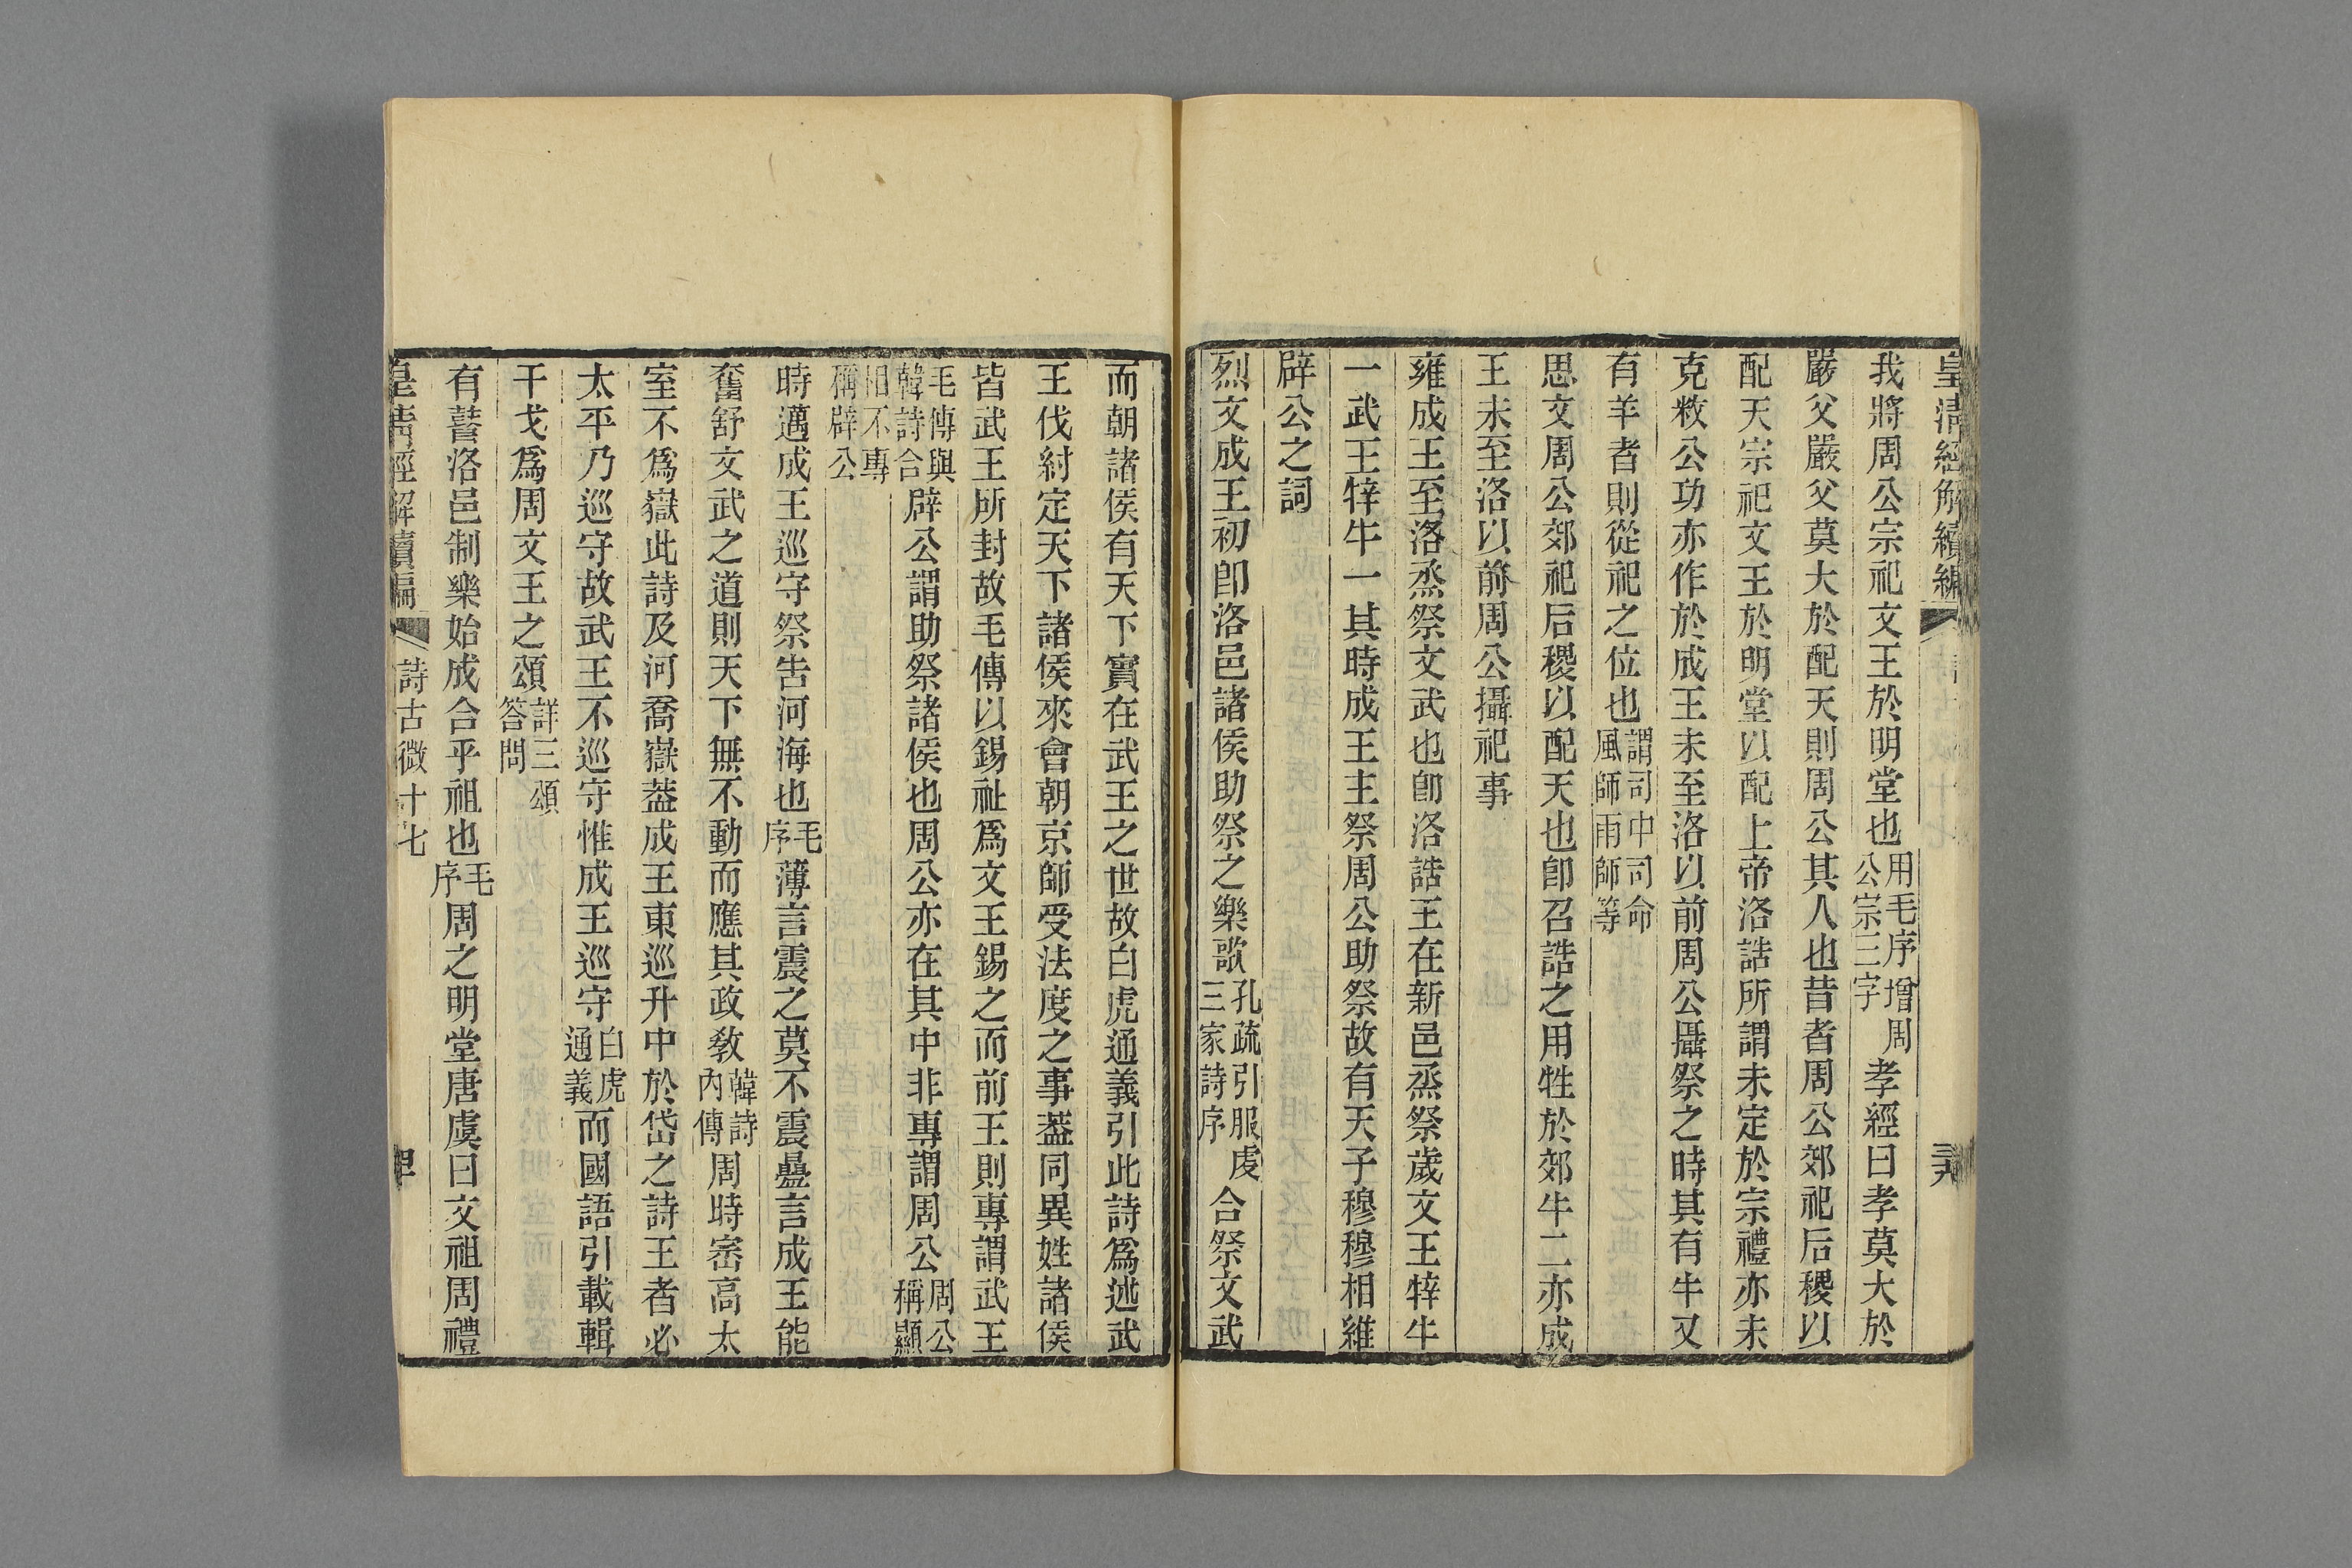 皇清經解續編
三九
我將周公宗祀文王於明堂也用毛序增周公宗三字孝經曰孝莫大於
嚴父嚴父莫大於配天則周公其人也昔者周公郊祀后稷以
配天宗祀文王於明堂以配上帝洛誥所謂未定於宗禮亦未
克敉公功亦作於成王未至洛以前周公攝祭之時其有牛又
有羊者則從祀之位也謂司中司命風師雨師等
思文周公郊祀后稷以配天也卽召誥之用牲於郊牛二亦成
王未至洛以前周公攝祀事
雍成王至洛烝祭文武也卽洛誥王在新邑烝祭歲文王騂牛
一武王騂牛一其時成王主祭周公助祭故有天子穆穆相維
辟公之詞
烈文成王初卽洛邑諸侯助祭之樂歌孔疏引服虔三家詩序合祭文武
而朝諸侯有天下實在武王之世故白虎通義引此詩爲述武
王伐紂定天下諸侯來會朝京師受法度之事葢同異姓諸侯
皆武王所封故毛傳以錫祉爲文王錫之而前王則專謂武王
毛傳與韓詩合辟公謂助祭諸侯也周公亦在其中非專謂周公周公稱顯
相不專稱辟公
時邁成王巡守祭告河海也毛序薄言震之莫不震疊言成王能
奮舒文武之道則天下無不動而應其政敎韓詩內傳周時崈高太
室不爲嶽此詩及河喬嶽葢成王東巡升中於岱之詩王者必
太平乃巡守故武王不巡守惟成王巡守白虎通義而國語引載輯
干戈爲周文王之頌詳三頌答問
有瞽洛邑制樂始成合乎祖也毛序周之明堂唐虞曰文祖周禮
皇清經解續編
詩古微十七